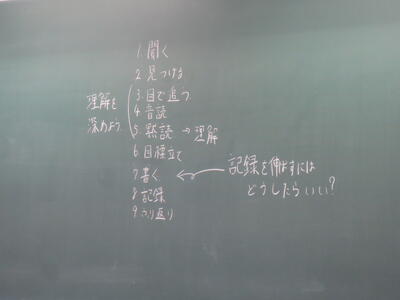 1. 聞く
2. 見つける
3. 目で追う
4. 音読
5. 黙読 → 理解
6. 目標立て
7. 書く
8. 記録
9. ふり返り
理解を
深めよう
記録を伸ばすには
どうしたらいい?